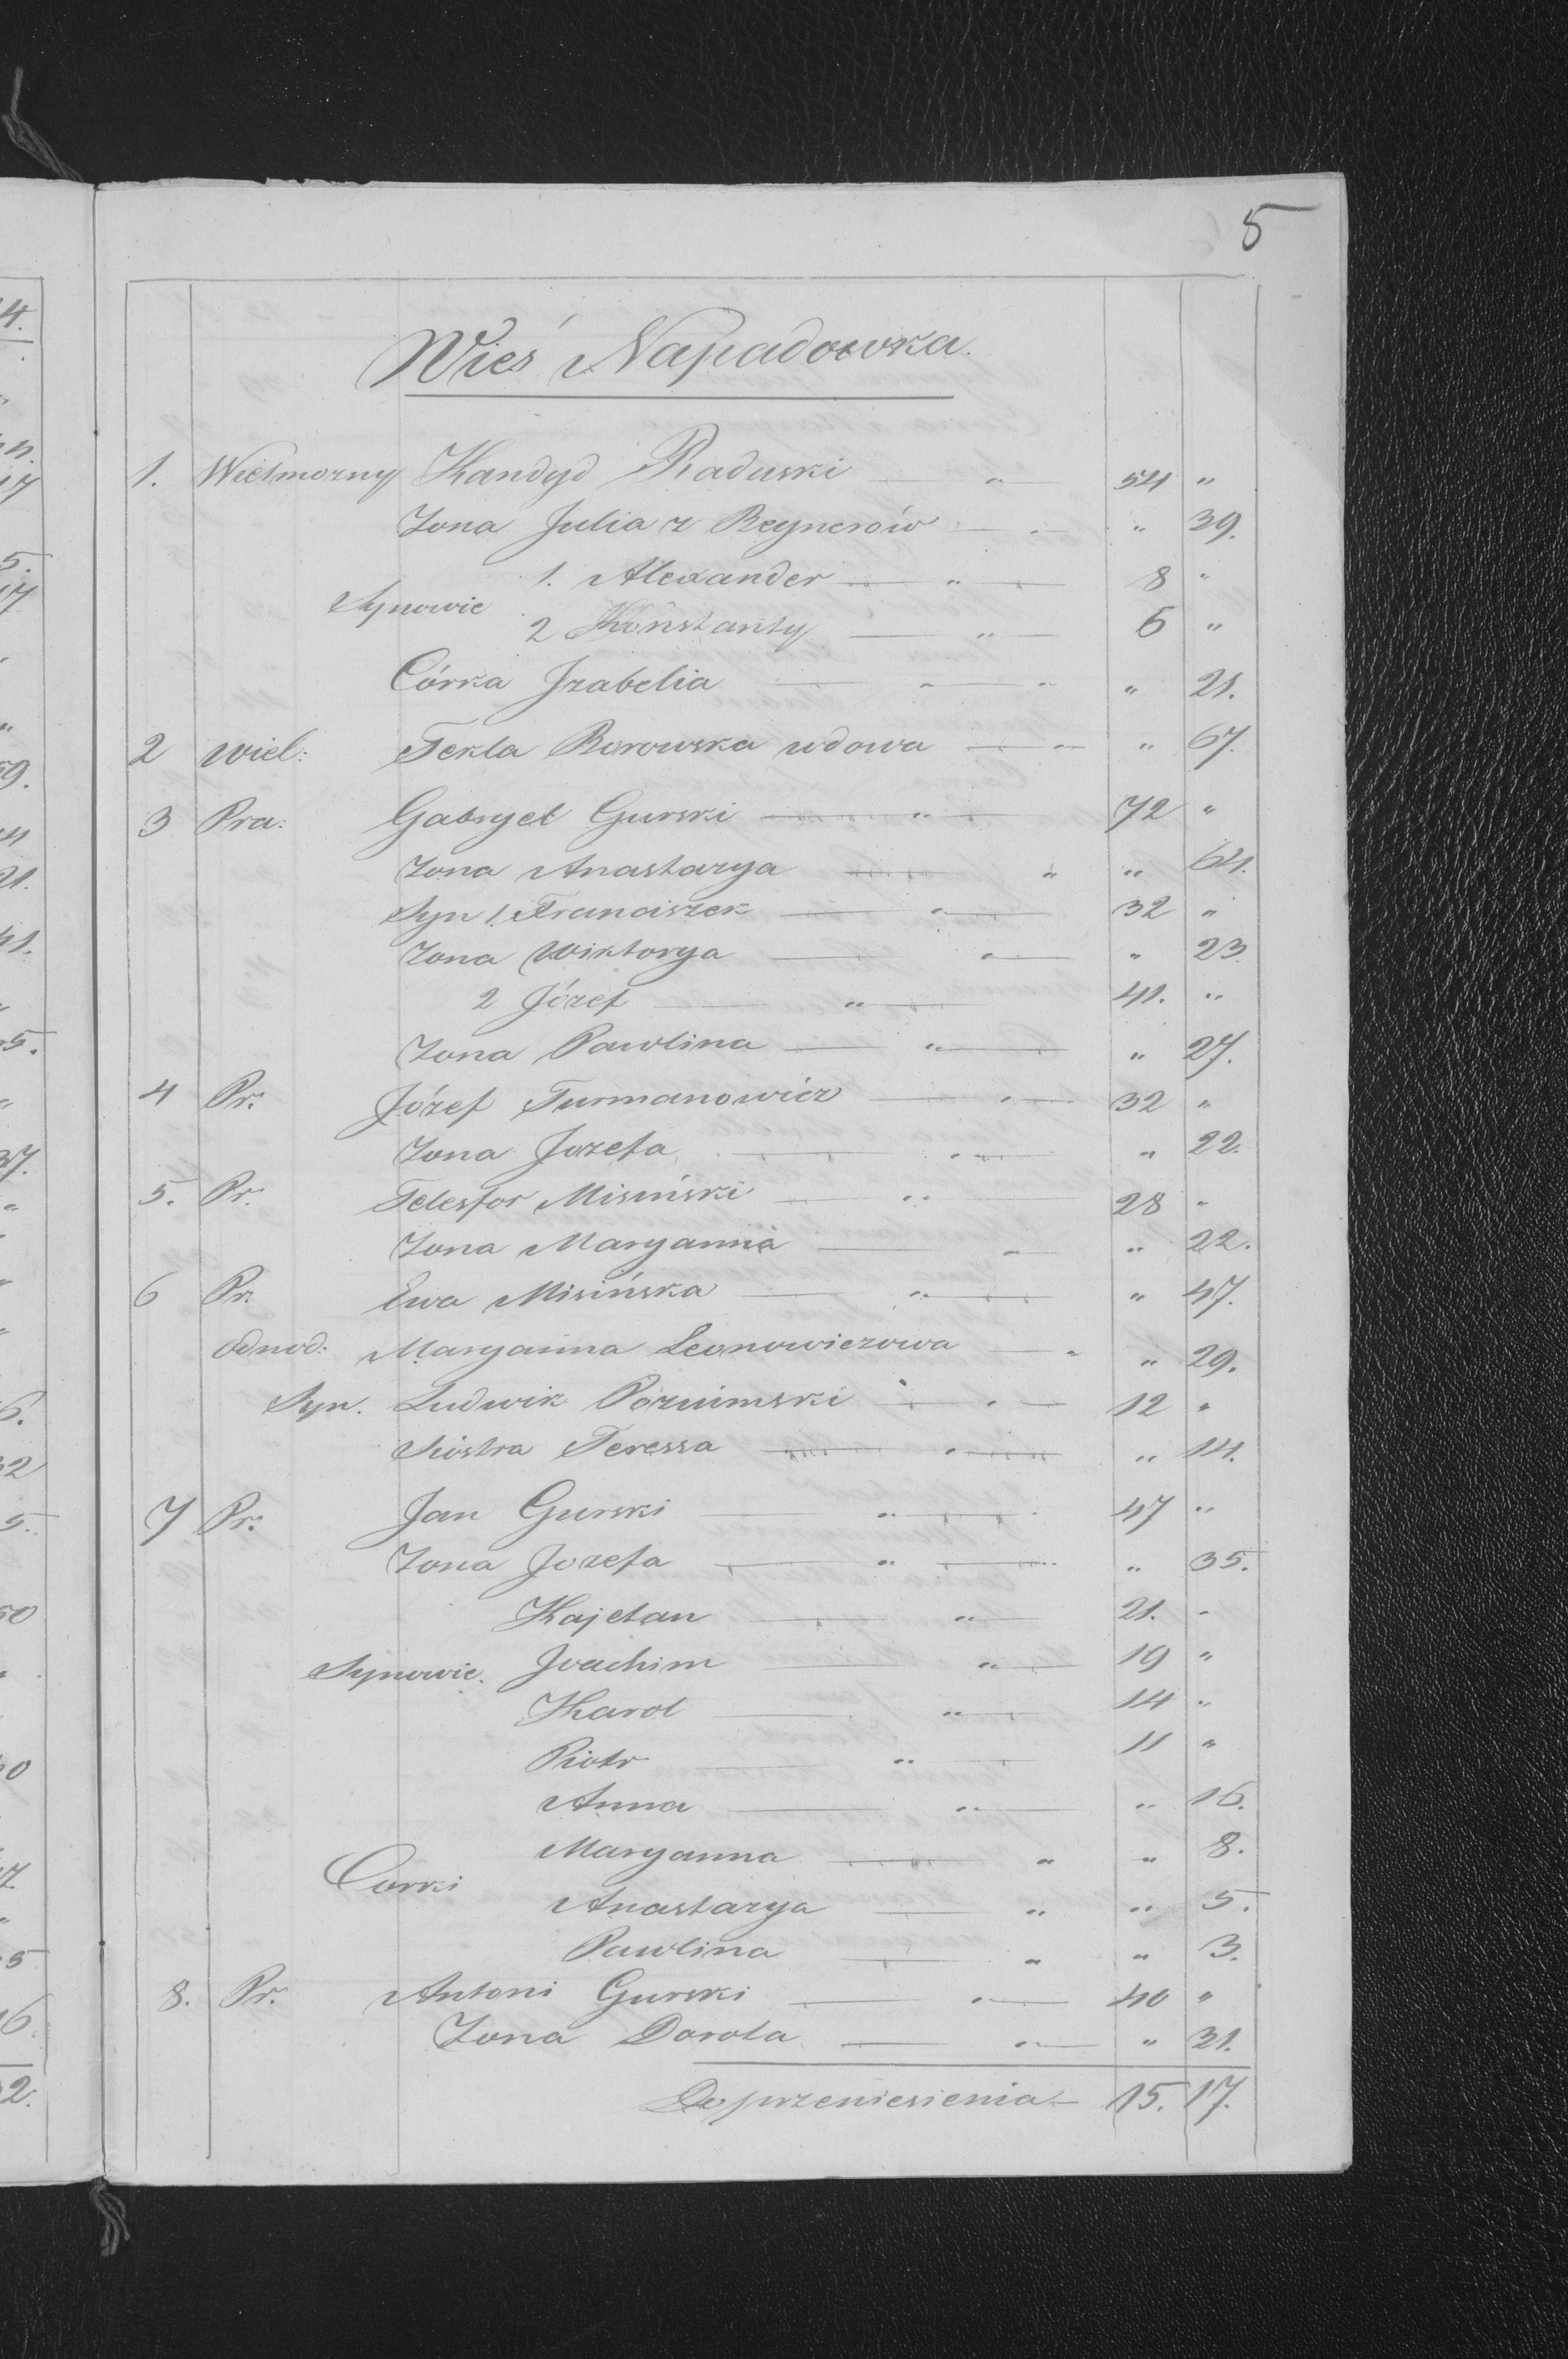 5
Wieś Napadowka.
1. Wielmozny Kandyd Raduski — „ — 54 „
Zona Julia z Reynerów — „ — „ 39.
1. Alexander — „ — 8 „
Synowie
2 Konstanty — „ — 6 „
Córka Jzabelia — „ — „ „ 21.
2 Wiel: Tekla Borowska wdowa — „ „ 67.
3 Pra: Gabryel Gurski — „ — 72 „
Zona Anastazya — „ „ 64.
Syn 1. Franciszek — „ — 32 „
Zona Wiktorya — „ — „ 23
2 Józef — „ — 41. „
Zona Pawlina — „ — „ 27.
4 Pr: Józef Turmanowicz — „ — 32 „
Zona Jozefa — „ — „ 22.
5. Pr. Telesfor Misiński — „ — 28 „
Zona Maryanna — „ „ 22.
6 Pr. Ewa Misińska — „ — „ 47.
Odnod: Maryanna Leonowiczowa — „ „ 29.
Syn. Ludwik — „ — 12 „
Siostra Teressa — „ — „ 14.
7 Pr: Jan Gurski — „ — 47 „
Zona Jozefa — „ — „ 35.
Kajetan — „ — 21. „
Synowie. Joachim — „ — 19 „
Karol — „ — 14 „
Piotr — „ — 11 „
Anna — „ — „ 16.
Maryanna — „ „ 8.
Corki
Anastazya — „ „ 5.
Pawlina — „ „ 3.
8. Pr. Antoni Gurski — „ — 40 „
Zona Dorota — „ — „ 31.
Do przeniesienia — 15. 17.